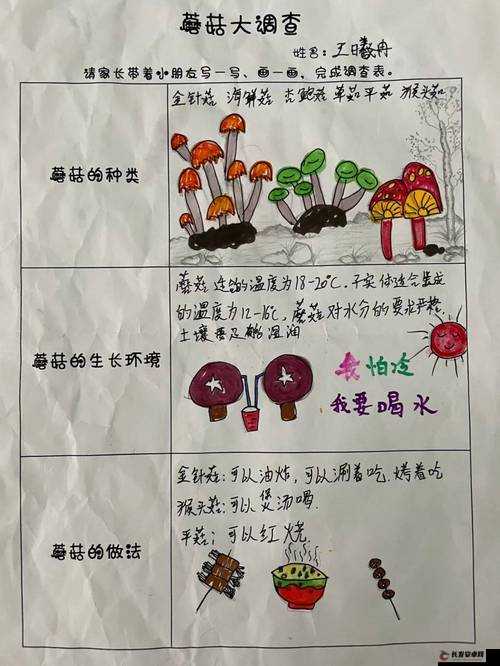 蘑菇大调查
姓名:王日羲冉
请家长带着小朋友写一写、画一画,完成调查表。
蘑菇的种类
金针菇 海鲜菇 杏鲍菇 草菇 平菇 猴头菇
蘑菇的生长环境
蘑菇 的温度为18-20℃. 子实体适合生成
的温度为12-16℃, 蘑菇对水分的要求严格.
土壤要足够湿润
我怕冷
我要喝水
蘑菇的做法
金针菇:可以油炸,可以涮着吃.烤着吃
猴头菇:可以煲汤喝
平菇;可以红烧.
长发安卓网